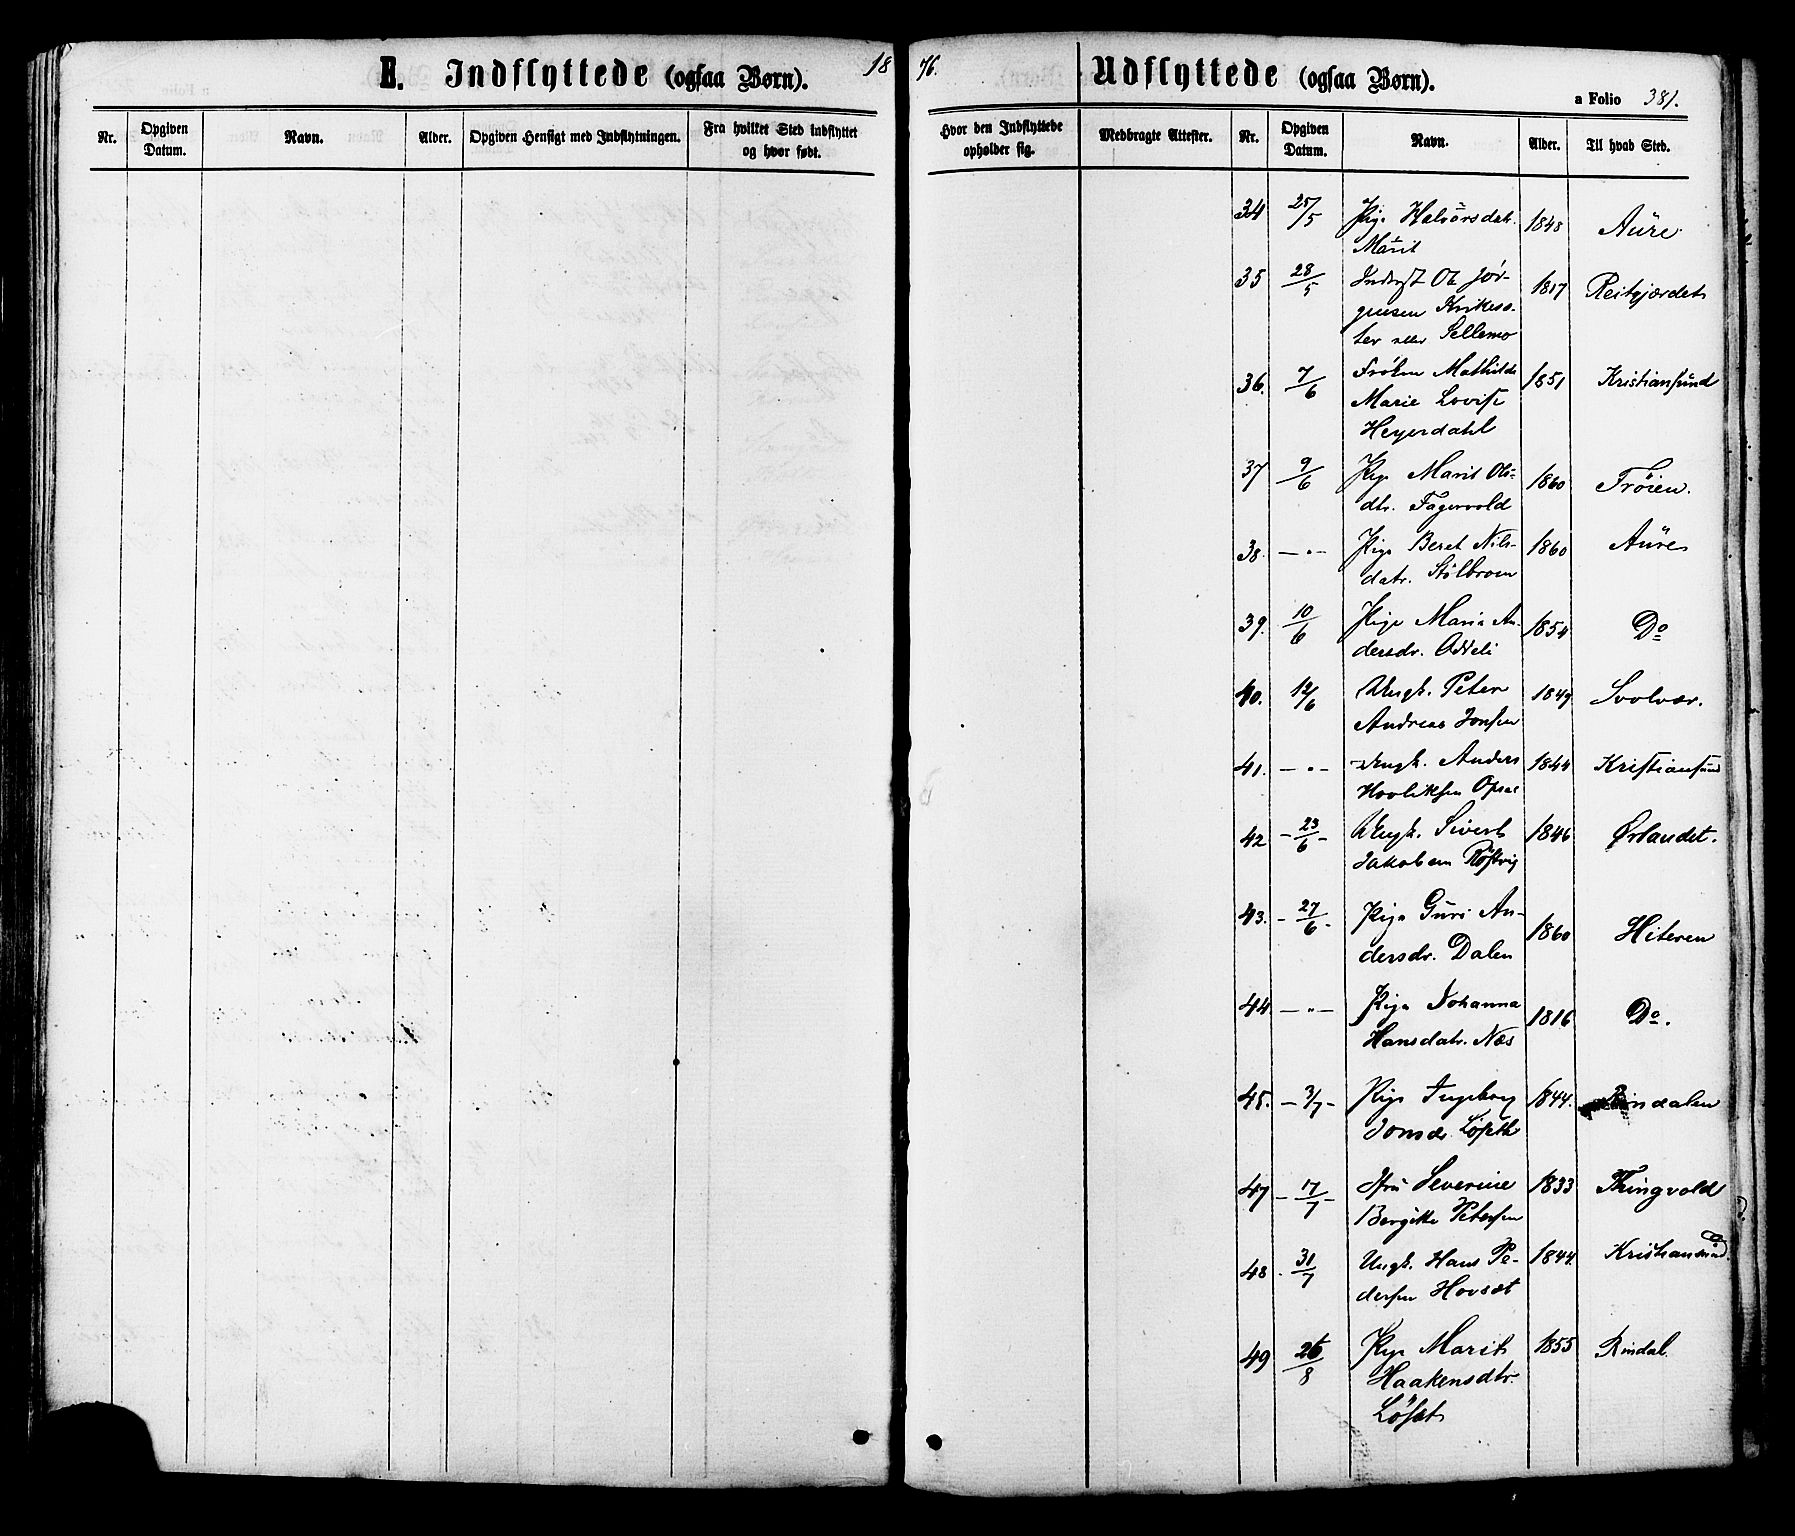 E. Indflyttede (ogsaa Børn). 18
76. Udflyttede (ogsaa Børn).
a Folio 381.
Nr. Opgiven Datum. Navn. Alder. Opgiven Hensigt med Indflytningen. Fra hvilket Sted indflyttet og hvor født.
Hvor den Indflyttede opholder sig. Medbragte Attester. Nr. Opgiven Datum. Navn. Alder. Til hvad Sted.
34 25/5 Pige Halvorsdatr. 1848 Aure.
Marit
35 28/5 Inderst Ole Jør- 1817 Reitgjærdet
gensen
eller Sellemo
36. 7/6 Frøken Mathilde 1851 Kristiansund
Marie Lovise
Heyerdahl
37 9/6 Pige Marit Ols- 1860 Frøien.
dtr. Fagervold
38. — " — Pige Beret Nils- 1860 Aure
datr. Stølbroen
39. 10/6 Pige Maria An- 1854 Do
dersdr. Oddeli
40. 12/6 Ungk. Peter 1849 Svolvær.
Andreas Jonsen
41. — " — Ungk. Anders 1844 Kristiansund
Opsal
42 23/6 Ungk. Sivert 1846 Ørlandet.
Jakobsen Røstvig
43. 27/6 Pige Guri An- 1860 Hiteren
dersdr. Dalen
44 — " — Pige Johanna 1816 Do.
Hansdatr. Næs
45. 3/7 Pige Ingeborg 1844. Rindalen
Jonsdr. Løseth
47 17/7 Fru Severine 1833 Thingvold
Bergitte Petersen
48 31/7 Ungk. Hans Pe- 1844. Kristiansund
dersen Hovsæt
49 26/8 Pige Marit 1855 Rindal.
Haakensdtr.
Løset